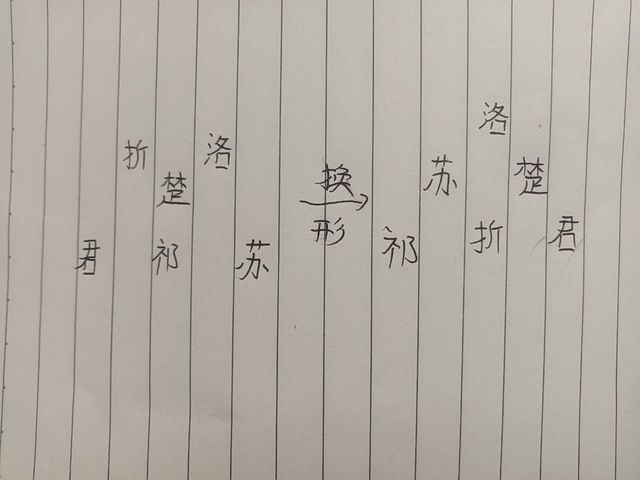 折 洛
楚
君 祁 苏
换
形
洛
苏 楚
祁 折 君